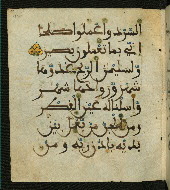 السرد واعملوا صلحا
اني بما تعملون بصير
ولسليمن الريح غدوها
شهر ورواحها شهر
واسلنا له عين القطر
ومن الجن من يعمل بين
يديه باذن ربه ومن